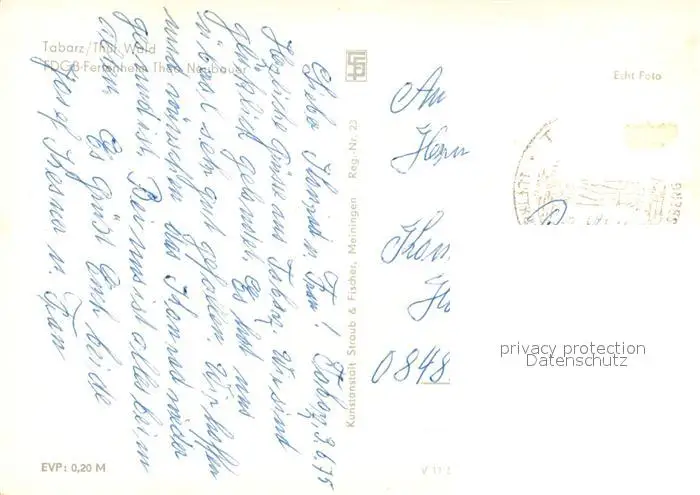 Tabarz/Thür. Wald
FDGB-Ferienheim Theo Neubauer
Echt Foto
Kunstanstalt Straub & Fischer, Meiningen Reg.-Nr. 23
Tabarz, 3.6.75
Liebe Konrad u. Frau!
Herzliche Grüße aus Tabarz. Wir sind
glücklich gelandet. Es hat uns
in Basel sehr gut gefallen. Wir hoffen
und wünschen das Konrad wieder
gesund ist. Bei uns ist alles beim
alten. Es grüßt Euch beide
Josef u. Frau
An
Herrn
0848
privacy protection
Datenschutz
EVP: 0,20 M
V 11